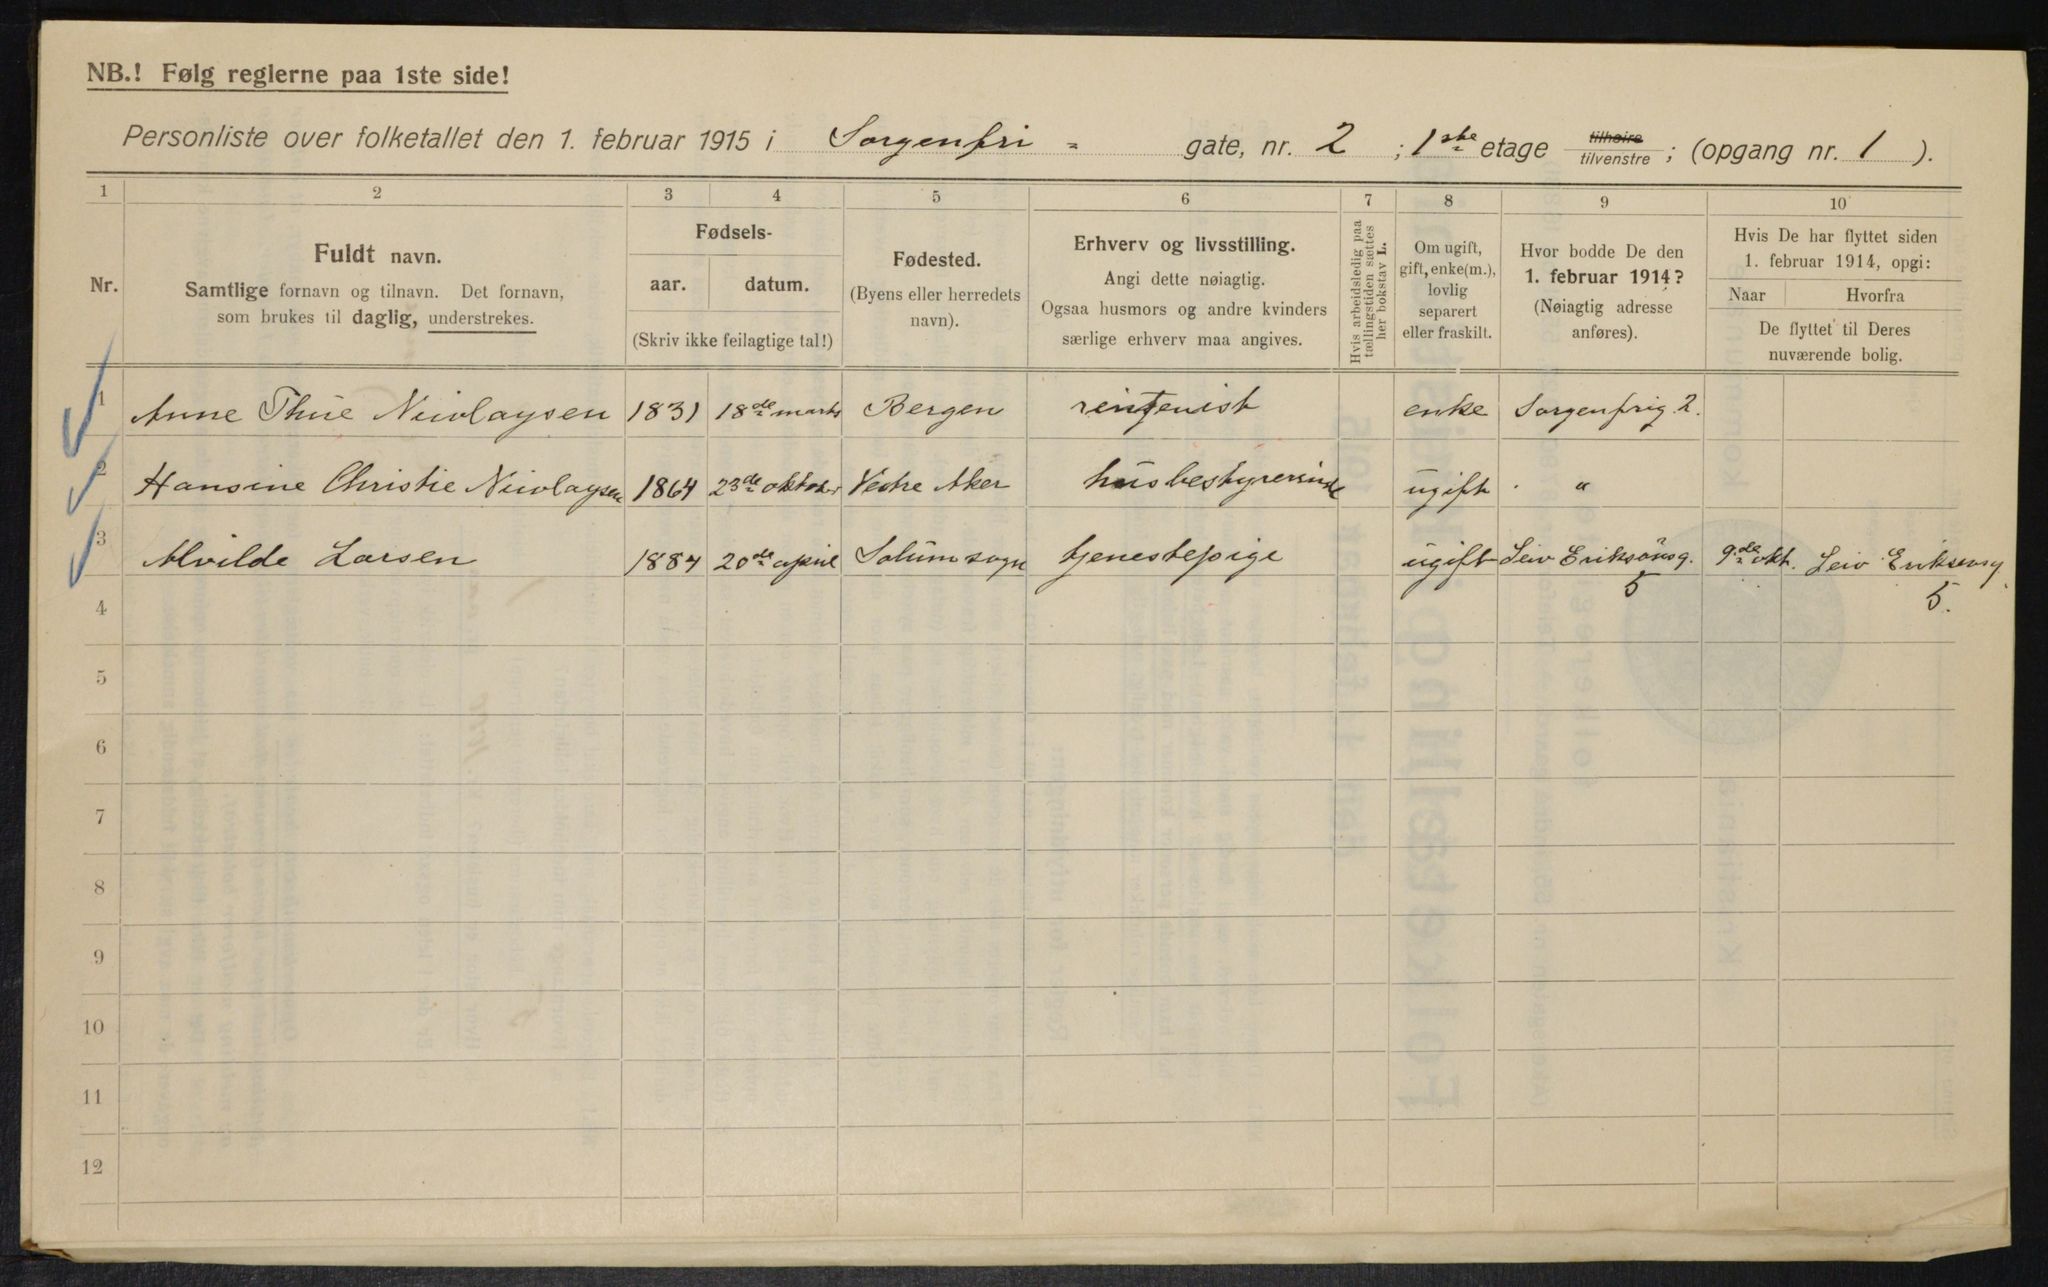 NB.! Følg reglerne paa 1ste side!
Personliste over folketallet den 1. februar 1915 i Sorgenfri - gate, nr. 2 ; 1ste etage tilhøire tilvenstre ; (opgang nr. 1 ).
1 2 3 4 5 6 7 8 9 10
Nr.
Fuldt navn.
Samtlige fornavn og tilnavn. Det fornavn,
som brukes til daglig, understrekes.
Fødsels-
aar. datum.
(Skriv ikke feilagtige tal!)
Fødested.
(Byens eller herredets
navn).
Erhverv og livsstilling.
Angi dette nøiagtig.
Ogsaa husmors og andre kvinders
særlige erhverv maa angives.
Hvis arbeidsledig paa
tællingstiden sættes
her bokstav L.
Om ugift,
gift, enke(m.),
lovlig
separert
eller fraskilt.
Hvor bodde De den
1. februar 1914?
(Nøiagtig adresse
anføres).
Hvis De har flyttet siden
1. februar 1914, opgi:
Naar Hvorfra
De flyttet til Deres
nuværende bolig.
1 Anne Thue Nicolaysen 1831 18de marts Bergen rentenist enke Sorgenfrig 2.
2 Hansine Christie Nicolaysen 1864 23de oktober Vestre Aker husbestyrerinde ugift " "
3 Alvilde Larsen 1884 20de april Solum sogn tjenestepige ugift Leiv Eriksöns g. 9de okt. Leiv Eriksens g.
5 5.
4
5
6
7
8
9
10
11
12